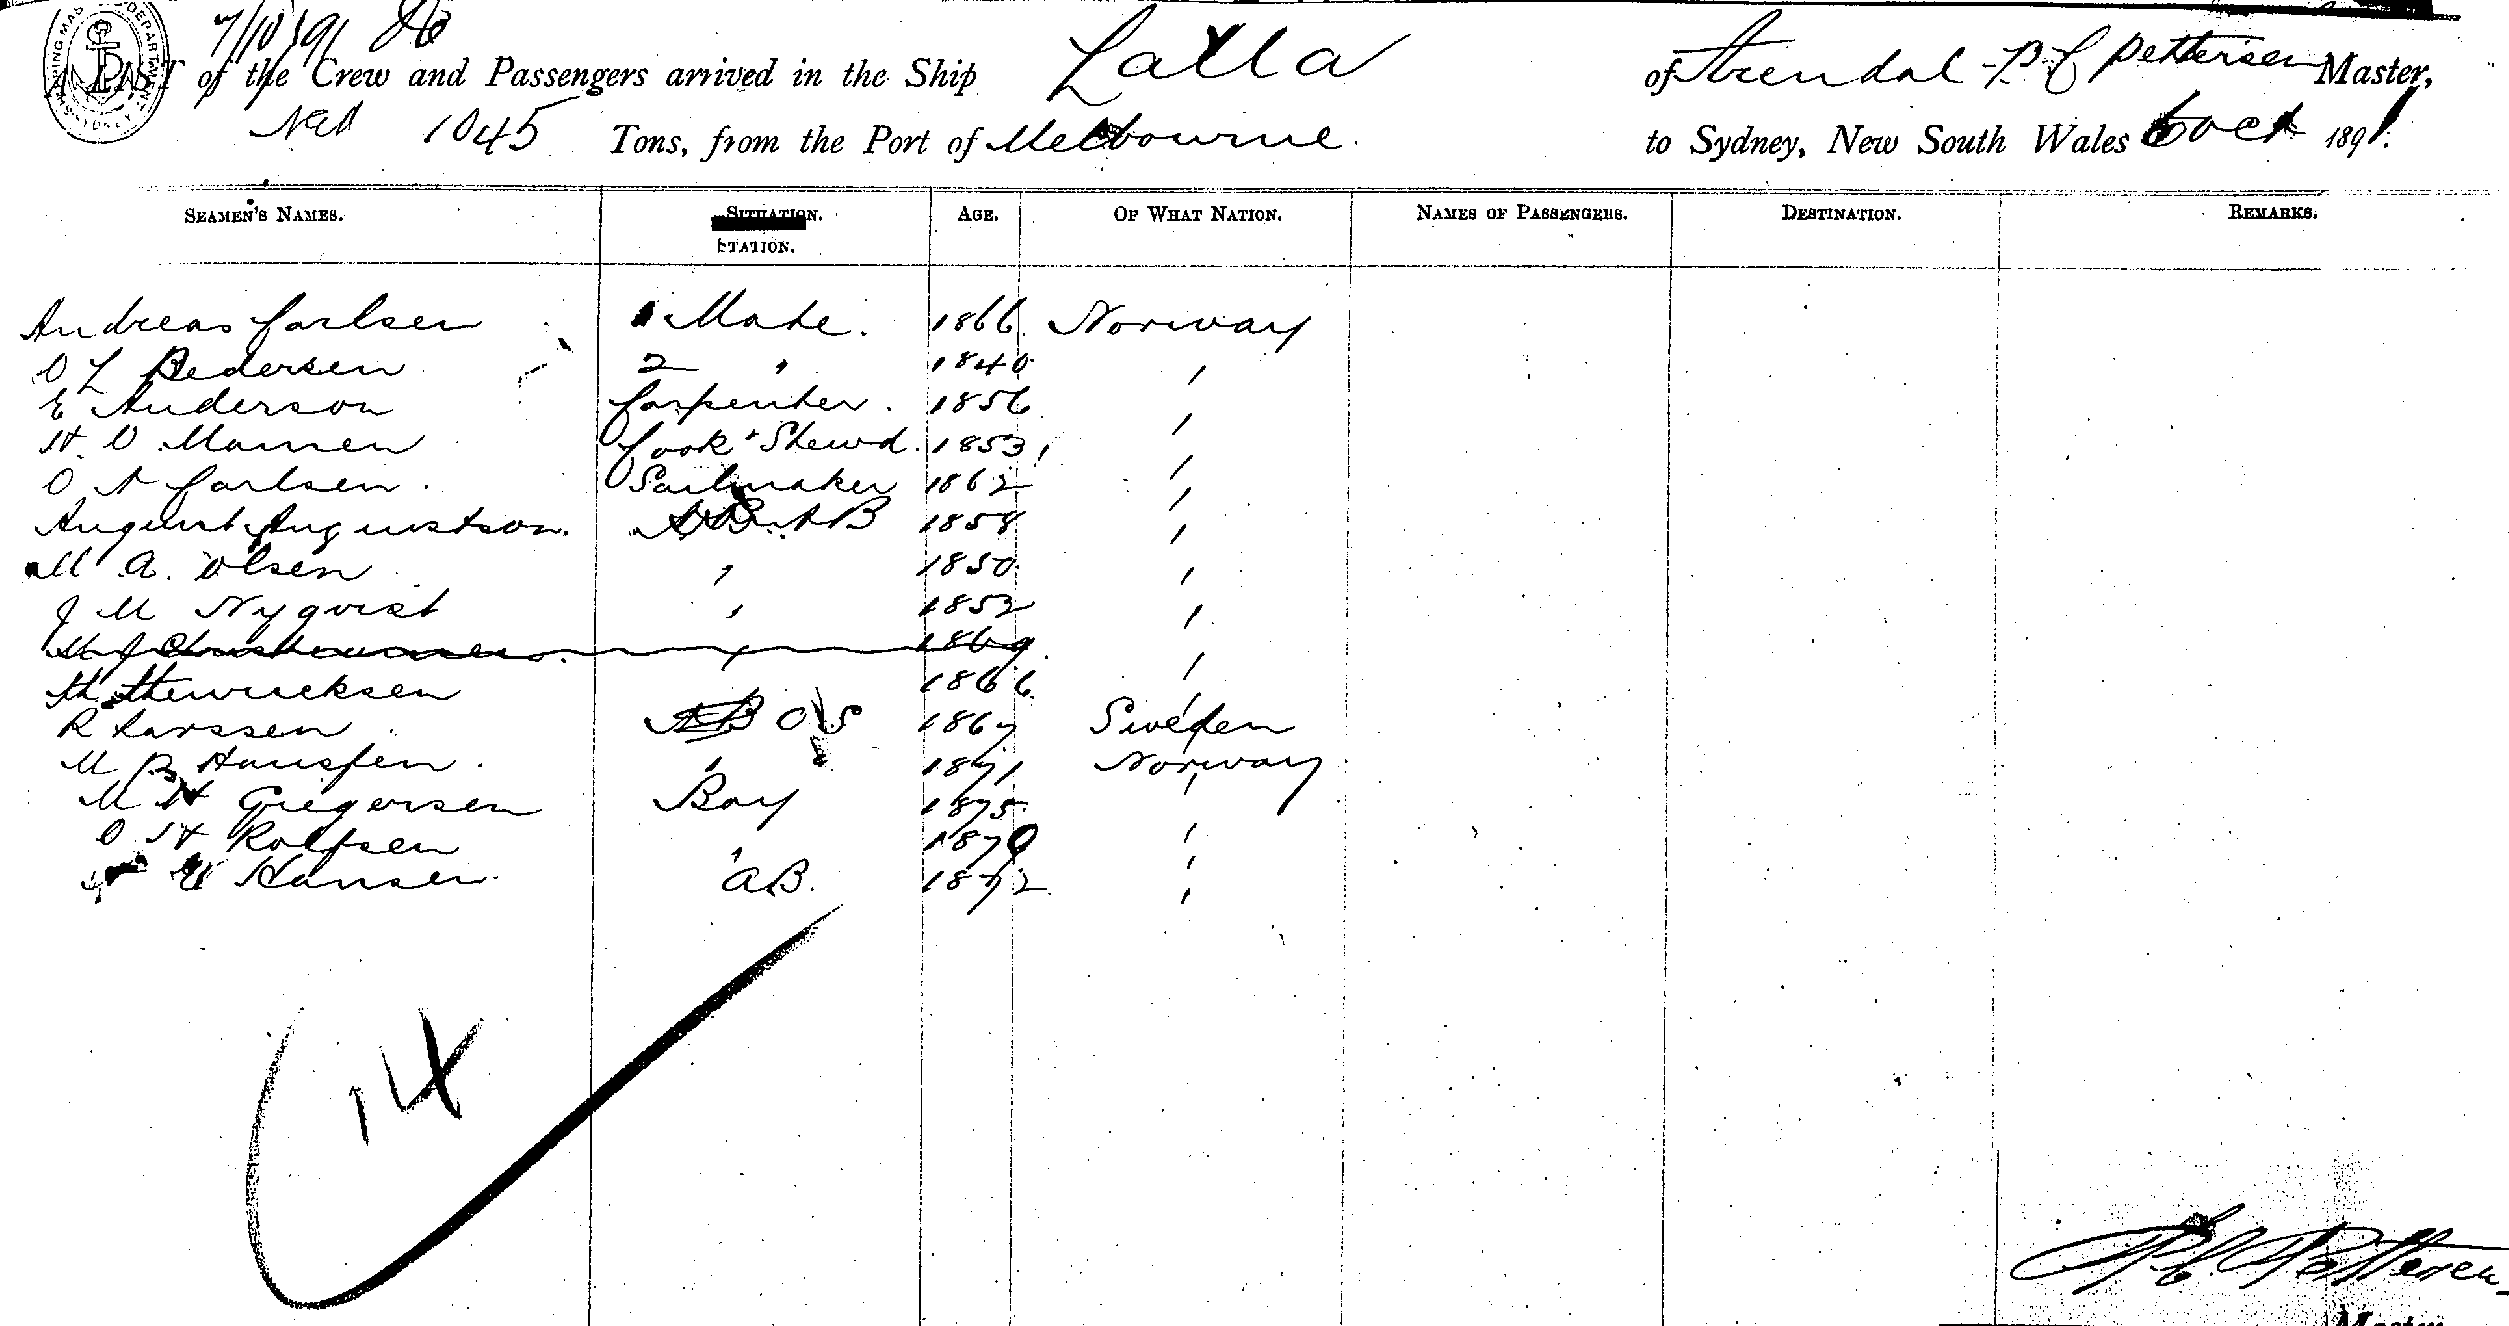 7/10/91
A LIST of the Crew and Passengers arrived in the Ship Lalla of Arendal P C Pettersen Master,
1045 Tons, from the Port of Melbourne to Sydney, New South Wales 6 Oct 1891.
SEAMEN'S NAMES. SITUATION. STATION. AGE. OF WHAT NATION. NAMES OF PASSENGERS. DESTINATION. REMARKS.
Andreas Carlsen Mate. 1866 Norway
O L Pedersen 2 " 1840 "
E Anderson Carpenter. 1856 "
H. O Mamen Cook & Stewd. 1853 "
O A Carlsen. Sailmaker 1862 "
August Augustson. AB 1858 "
M A. Olsen " 1850 "
J M Nyqvist " 1852 "
M J Christiansen. " 1869 "
M. Henricksen 1866 "
R Larssen AB OS 1867 Sweden
M B Hansen. " 1871 Norway
M H Gregersen Boy 1875 "
O H Rolfsen " 1870 "
M Hansen. AB. 1872 "
14
P C Pettersen
Master